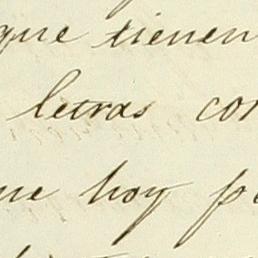 que tienen
letras con
que hoy